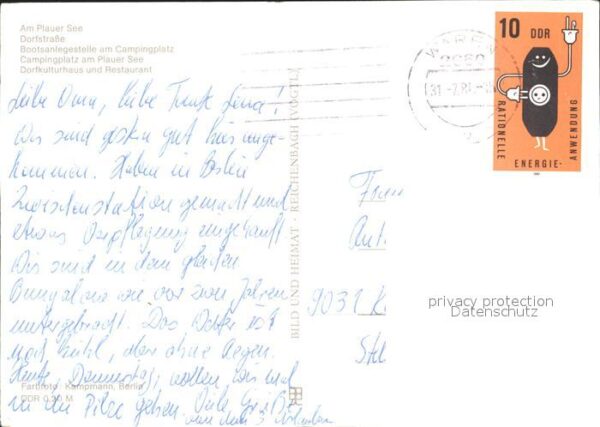 Am Plauer See
Dorfstraße
Bootsanlegestelle am Campingplatz
Campingplatz am Plauer See
Dorfkulturhaus und Restaurant
10 DDR
RATIONELLE
ENERGIE-
ANWENDUNG
WAREN
2060
31.-7.81.-
Liebe Oma, liebe Tante Lena!
Wir sind gestern gut hier ange-
kommen. Haben in Berlin
Zwischenstation gemacht und
etwas Verpflegung eingekauft
Wir sind in dem gleichen
Bungalow wie vor zwei Jahren
untergebracht. Das Wetter ist
noch kühl, aber ohne Regen.
Heute, Donnerstag, wollen wir mal
in die Pilze gehen. Viele Grüße
von den 3
BILD UND HEIMAT - REICHENBACH (VOGTL)
Frau
9031 K
privacy protection
Datenschutz
Farbfoto: Kampmann, Berlin
DDR 0,20 M